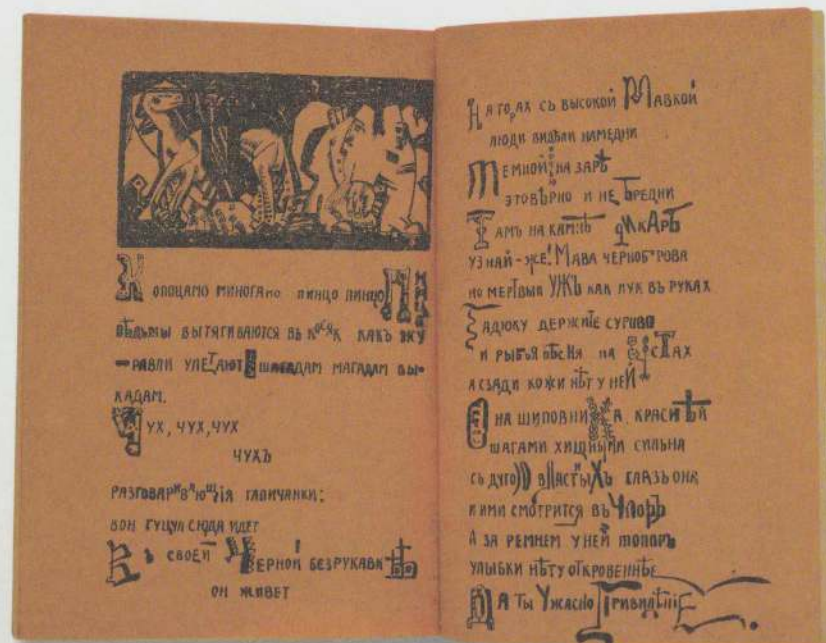 Копоцамо миногамо пинцо пинцо
Вѣдьмы вытягиваются въ косяк какъ жу
равли улетают шагадам магадам вы-
кадам.
Чух, чух, чух
чухъ
Разговаривающія галичанки:
Вон гуцул сюда идет
Въ своей черной безрукавкѣ
он живет
На горах съ высокой Мавкой
люди видѣли намедни
Темной на зарѣ
это вѣрно и не бредни
Тамъ на камнѣ дикарь
узнай-же! Мава черноброва
но мертвый ужъ как лук въ руках
Гадюку держите сурово
и рыбья пѣсня на устах
а сзади кожи нѣт у ней
Она шиповника красиѣй
шагами хищными сильна
съ дугою властыхъ глазъ она
и ими смотрится въ упоръ
А за ремнем у ней топоръ
улыбки нѣту откровеннѣе
Да ты ужасно привидѣніе.